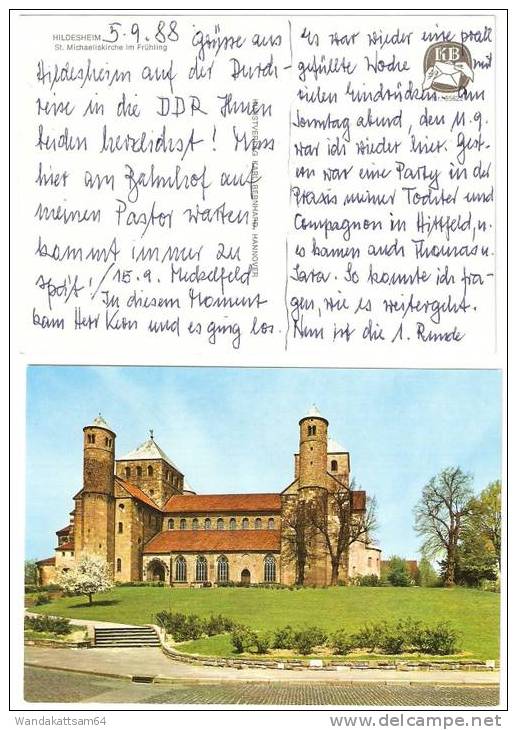 HILDESHEIM
St. Michaeliskirche im Frühling
5.9.88 Grüsse aus
Hildesheim auf der Durch-
reise in die DDR Ihnen
beiden herzlichst! Muss
hier am Bahnhof auf
meinen Pastor warten
kommt immer zu
spät!/15.9. Meckelfeld
In diesem Moment
kam Herr und es ging los.
KUNSTVERLAG CARL BERNHARD, HANNOVER
KB
Es war wieder eine prall
gefüllte Woche mit
vielen Eindrücken. Am
Sonntag abend, den 11.9.
war ich wieder hier. Ges-
tern war eine Party in der
Praxis meiner Tochter und
Compagnon in Hittfeld, u.
es kamen auch Thomas u.
Sara. So konnte ich fra-
gen, wie es weitergeht.
Nun ist die 1. Runde
Wandakattsam64
www.delcampe.net